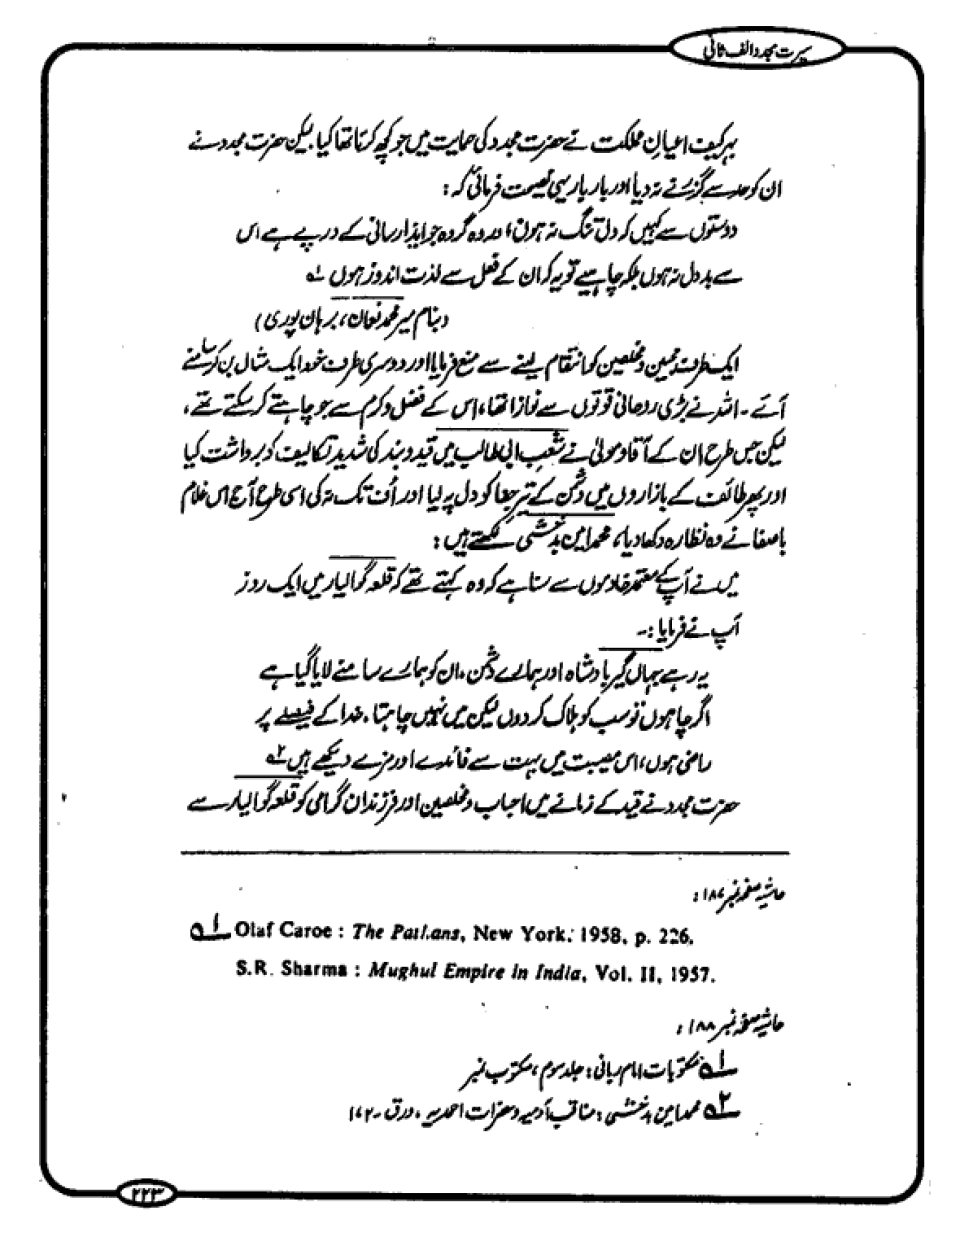 سیرت مجدد الف ثانی
بہرکیف اعیانِ مملکت نے حضرت مجدد کی حمایت میں جو کچھ کرنا تھا کیا۔ لیکن حضرت مجدد نے
ان کو حد سے گزرنے نہ دیا اور بار بار یہی نصیحت فرمائی کہ :
دوستوں سے کہیں کہ دل تنگ نہ ہوں، اور وہ گروہ جو ایذا رسانی کے درپے ہے اس
سے بد دل نہ ہوں بلکہ چاہیے تو یہ کہ ان کے فعل سے لذت اندوز ہوں ۱ے
(بنام میر محمد نعمان، برہان پوری)
ایک طرف محبین و مخلصین کو انتقام لینے سے منع فرمایا اور دوسری طرف خود ایک مثال بن کر سامنے
آئے۔ اللہ نے بڑی روحانی قوتوں سے نوازا تھا، اس کے فضل و کرم سے جو چاہتے کر سکتے تھے،
لیکن جس طرح ان کے آقا و مولیٰ نے شعب ابی طالب میں قید و بند کی شدید تکالیف کو برداشت کیا
اور پھر طائف کے بازاروں میں دشمن کے تیر جفا کو دل پہ لیا اور اُف تک نہ کی اسی طرح آج اس غلام
باصفا نے وہ نظارہ دکھا دیا، محمد امین بدخشی لکھتے ہیں :
میں نے آپ کے معتمد خادموں سے سنا ہے کہ وہ کہتے تھے کہ قلعہ گوالیار میں ایک روز
آپ نے فرمایا :-
یہ رہے جہاں گیر بادشاہ اور ہمارے دشمن، ان کو ہمارے سامنے لایا گیا ہے
اگر چاہوں تو سب کو ہلاک کر دوں لیکن میں نہیں چاہتا، خدا کے فیصلے پر
راضی ہوں، اس مصیبت میں بہت سے فائدے اور مزے دیکھے ہیں ۲ے
حضرت مجدد نے قید کے زمانے میں احباب و مخلصین اور فرزندان گرامی کو قلعہ گوالیار سے
حاشیہ صفحہ نمبر ۱۸۷ :
۱ے Olaf Caroe : The Pathans, New York. 1958, p. 226.
S.R. Sharma : Mughul Empire in India, Vol. II, 1957.
حاشیہ صفحہ نمبر ۱۸۸ :
۱ے مکتوبات امام ربانی : جلد سوم، مکتوب نمبر
۲ے محمد امین بدخشی : مناقب آدمیہ و حضرات احمدیہ، ورق۔ ۱۷۲
۲۲۳